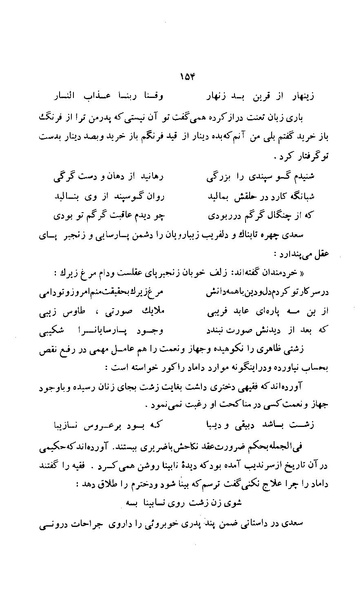 ۱۵۴
زینهار از قرین بد زنهار وقنا ربنا عذاب النار
باری زبان تعنت دراز کرده همی‌گفت تو آن نیستی که پدر من ترا از فرنگ
باز خرید گفتم بلی من آنم که بده دینار از قید فرنگم باز خرید و بصد دینار بدست
تو گرفتار کرد .
شنیدم گوسپندی را بزرگی رهانید از دهان و دست گرگی
شبانگه کارد در حلقش بمالید روان گوسپند از وی بنالید
که از چنگال گرگم در ربودی چو دیدم عاقبت گرگم تو بودی
سعدی چهره تابناک و دلفریب زیبارویان را دشمن پارسایی و زنجیر پای
عقل می‌پندارد :
« خردمندان گفته‌اند: زلف خوبان زنجیر پای عقلست و دام مرغ زیرک :
در سر کار تو کردم دل و دین با همه دانش مرغ زیرک بحقیقت منم امروز و تو دامی
از بن سه پاره‌ای عابد فریبی ملایک صورتی ، طاوس زیبی
که بعد از دیدنش صورت نبندد وجود پارسایانرا شکیبی
زشتی ظاهری را نکوهیده و جهاز و نعمت را هم عامل مهمی در رفع نقص
بحساب نیاورده و در اینگونه موارد داماد را کور خواسته است :
آورده‌اند که فقیهی دختری داشت بغایت زشت بجای زنان رسیده و با وجود
جهاز و نعمت کسی در مناکحت او رغبت نمی‌نمود .
زشت باشد دبیقی و دیبا که بود بر عروس نازیبا
فی‌الجمله بحکم ضرورت عقد نکاحش با ضریری ببستند. آورده‌اند که حکیمی
در آن تاریخ از سرندیب آمده بود که دیدهٔ نابینا روشن همی‌کرد . فقیه را گفتند
داماد را چرا علاج نکنی گفت ترسم که بینا شود و دخترم را طلاق دهد :
شوی زن زشت روی نابینا به
سعدی در داستانی ضمن پند پدری خوبروئی را داروی جراحات درونی